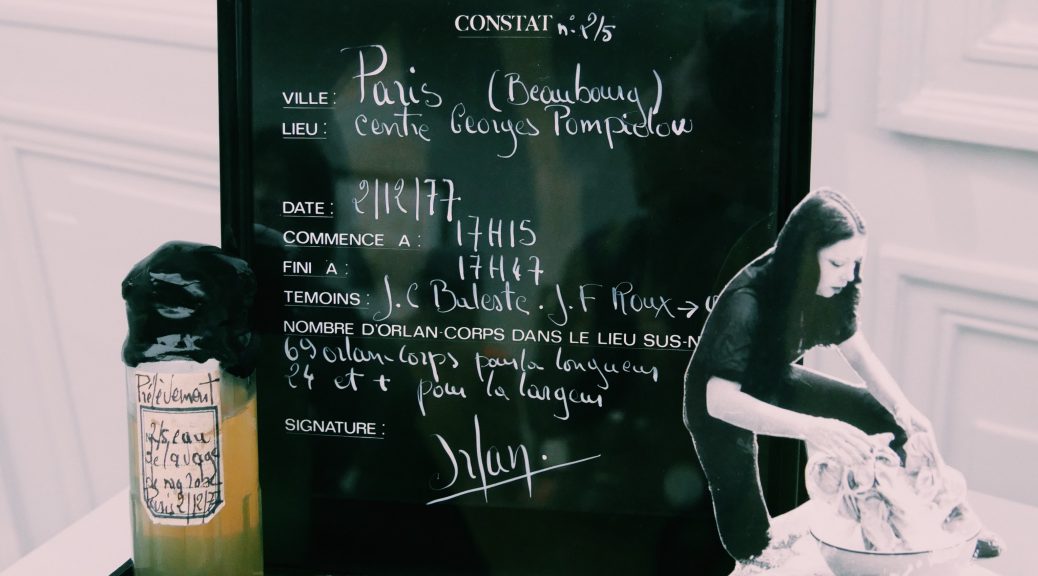 CONSTAT n° 2/5
VILLE : Paris (Beaubourg)
LIEU : Centre Georges Pompidou
DATE : 2/12/77
COMMENCE A : 17H15
FINI A : 17H47
TEMOINS : J.C Baleste. J.F Roux →
NOMBRE D'ORLAN-CORPS DANS LE LIEU SUS-N
69 orlan-corps pour la longueur
24 et + pour la largeur
SIGNATURE :
Orlan.
Prélèvement
n°2/5 eau
de lavage
de ma robe
Paris 2/12/77